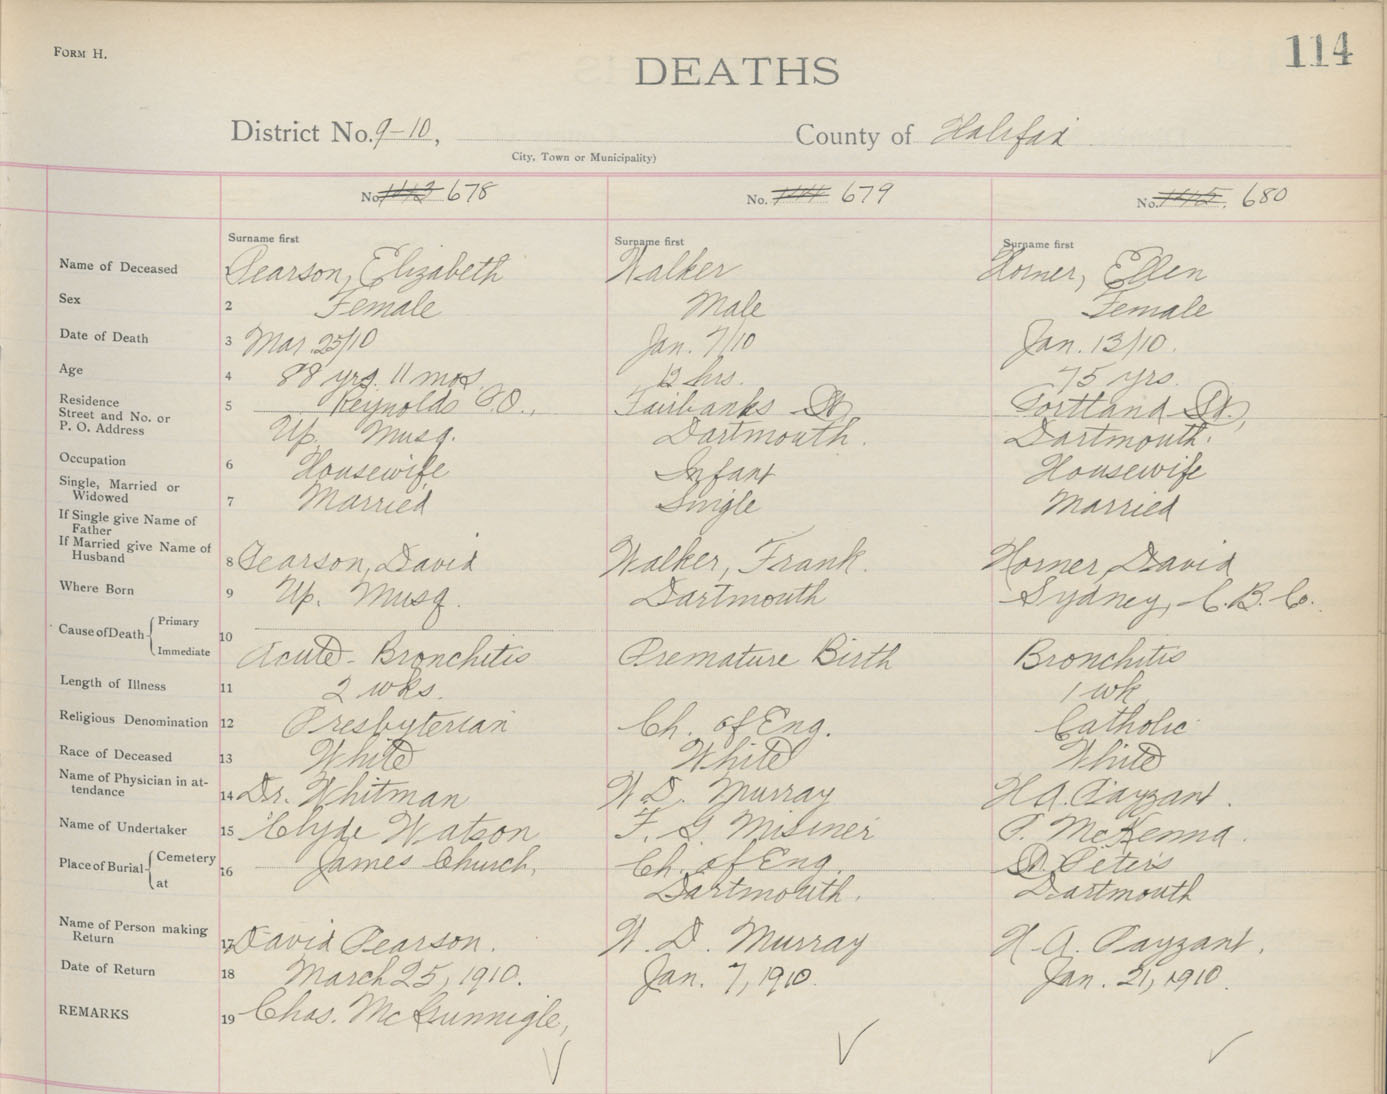 Form H.
114
DEATHS
District No. 9-10, County of Halifax
City, Town or Municipality)
No. 1443 678 No. 1444 679 No. 1445. 680
Surname first Surname first Surname first
Name of Deceased 1 Pearson, Elizabeth Walker Horner, Ellen
Sex 2 Female Male Female
Date of Death 3 Mar. 25/10 Jan. 7/10 Jan. 13/10.
Age 4 88 yrs. 11 mos. 12 hrs. 75 yrs.
Residence
Street and No. or 5 Reynolds P.O., Fairbanks St. Portland St.,
P. O. Address Up. Musq. Dartmouth. Dartmouth.
Occupation 6 Housewife Infant Housewife
Single, Married or
Widowed 7 Married Single Married
If Single give Name of
Father
If Married give Name of
Husband 8 Pearson, David Walker, Frank. Horner, David
Where Born 9 Up. Musq. Dartmouth Sydney, C.B. Co.
Cause of Death Primary
Immediate 10 Acute Bronchitis Premature Birth Bronchitis
Length of Illness 11 2 wks. 1 wk
Religious Denomination 12 Presbyterian Ch. of Eng. Catholic
Race of Deceased 13 White White White
Name of Physician in at-
tendance 14 Dr. Whitman W.D. Murray H.A. Payzant.
Name of Undertaker 15 Clyde Watson F. G Misener P. McKenna.
Place of Burial Cemetery 16 James Church, Ch. of Eng. St. Peter's
at Dartmouth. Dartmouth
Name of Person making
Return 17 David Pearson. W. D. Murray H. A. Payzant.
Date of Return 18 March 25, 1910. Jan. 7, 1910. Jan. 21, 1910.
REMARKS 19 Chas. McGunnigle,